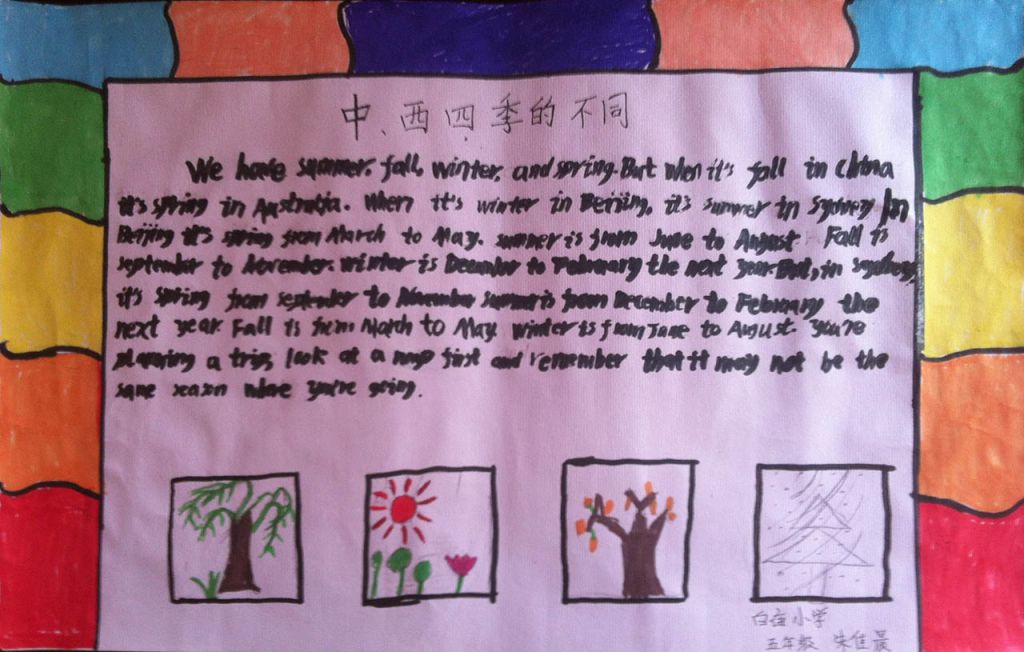 中、西四季的不同
We have summer. fall, winter, and spring. But when it's fall in China
it's spring in Australia. When it's winter in Beijing, it's summer in Sydney In
Beijing it's spring from March to May. summer is from June to August Fall is
september to November. winter is December to February the next year. But, in sydney,
it's spring from september to November summer is from December to February the
next year. Fall is from March to May. winter is from June to August. you're
planning a trip, look at a map first and remember that it may not be the
same season where you're going.
小学
五年级 朱佳晨